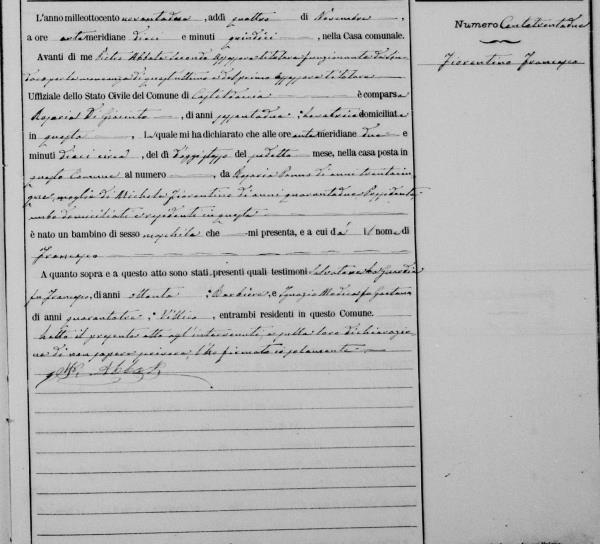 L'anno milleottocento novantadue, addì quattro di Novembre,
a ore antemeridiane dieci e minuti quindici, nella Casa comunale.
Avanti di me Abbate Secondo Assessore funzionante da Sindaco
per la mancanza di quest'ultimo e del primo Assessore
Uffiziale dello Stato Civile del Comune di Casteldaccia è comparsa
Rosaria Di Giacinto, di anni sessantadue, Levatrice domiciliata
in questo. La quale mi ha dichiarato che alle ore antemeridiane due e
minuti dieci circa, del dì d'oggi stesso del suddetto mese, nella casa posta in
questo Comune al numero, da Rosaria di anni trentacin
que, moglie di Michele Fiorentino di anni quarantadue
ambo domiciliati e residenti in questo
è nato un bambino di sesso maschile che mi presenta, e a cui dà il nome di
Francesco
A quanto sopra e a questo atto sono stati presenti quali testimoni Salvatore La Guardia
fu Francesco, di anni ottanta, Barbiere, e Ignazio Modica fu Gaetano
di anni quarantatre, Villico, entrambi residenti in questo Comune.
Letto il presente atto agli intervenuti, e sulla loro dichiarazio
ne di non sapere scrivere, l'ho firmato io solamente
Abbate
Numero Centotrentadue
Fiorentino Francesco